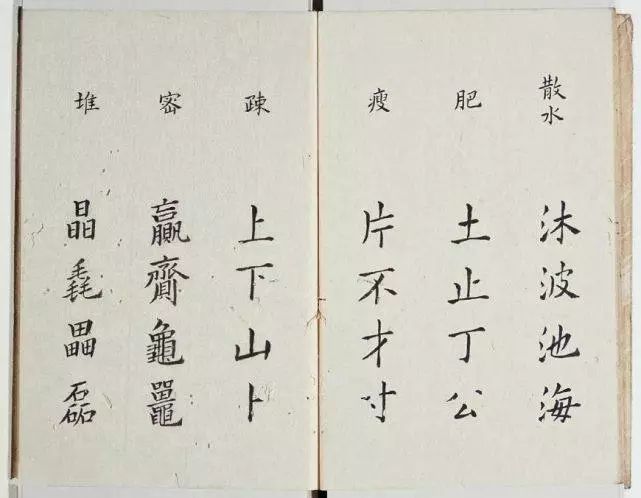 散水 沐波池海
肥 土止丁公
瘦 片不才寸
疎 上下山卜
密 贏齎龜鼉
堆 晶毳畾磊